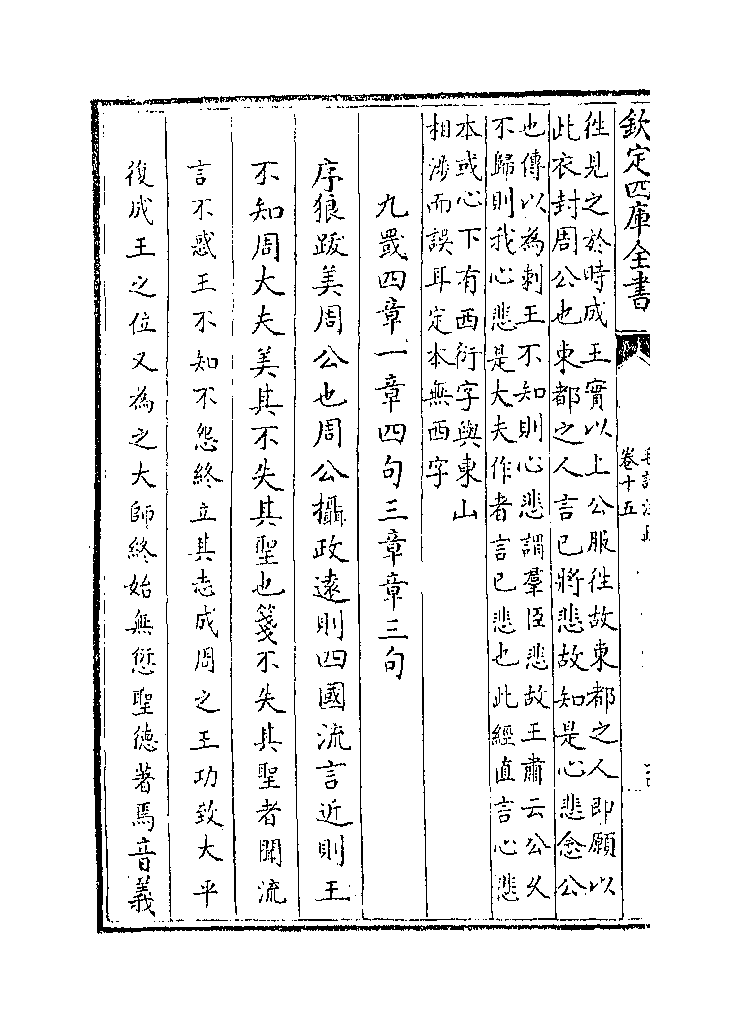 欽定四庫全書
卷十五
徃見之於時成王實以上公服徃故東都之人即願以
此衣封周公也東都之人言已將悲故知是心悲念公
也傳以為刺王不知則心悲謂羣臣悲故王肅云公乆
不歸則我心悲是大夫作者言已悲也此經直言心悲
本或心下有西衍字與東山
相渉而誤耳定本無西字
九罭四章一章四句三章章三句
序狼跋美周公也周公攝政遠則四國流言近則王
不知周大夫美其不失其聖也箋不失其聖者聞流
言不惑王不知不怨終立其志成周之王功致大平
復成王之位又為之大師終始無愆聖德著焉音義